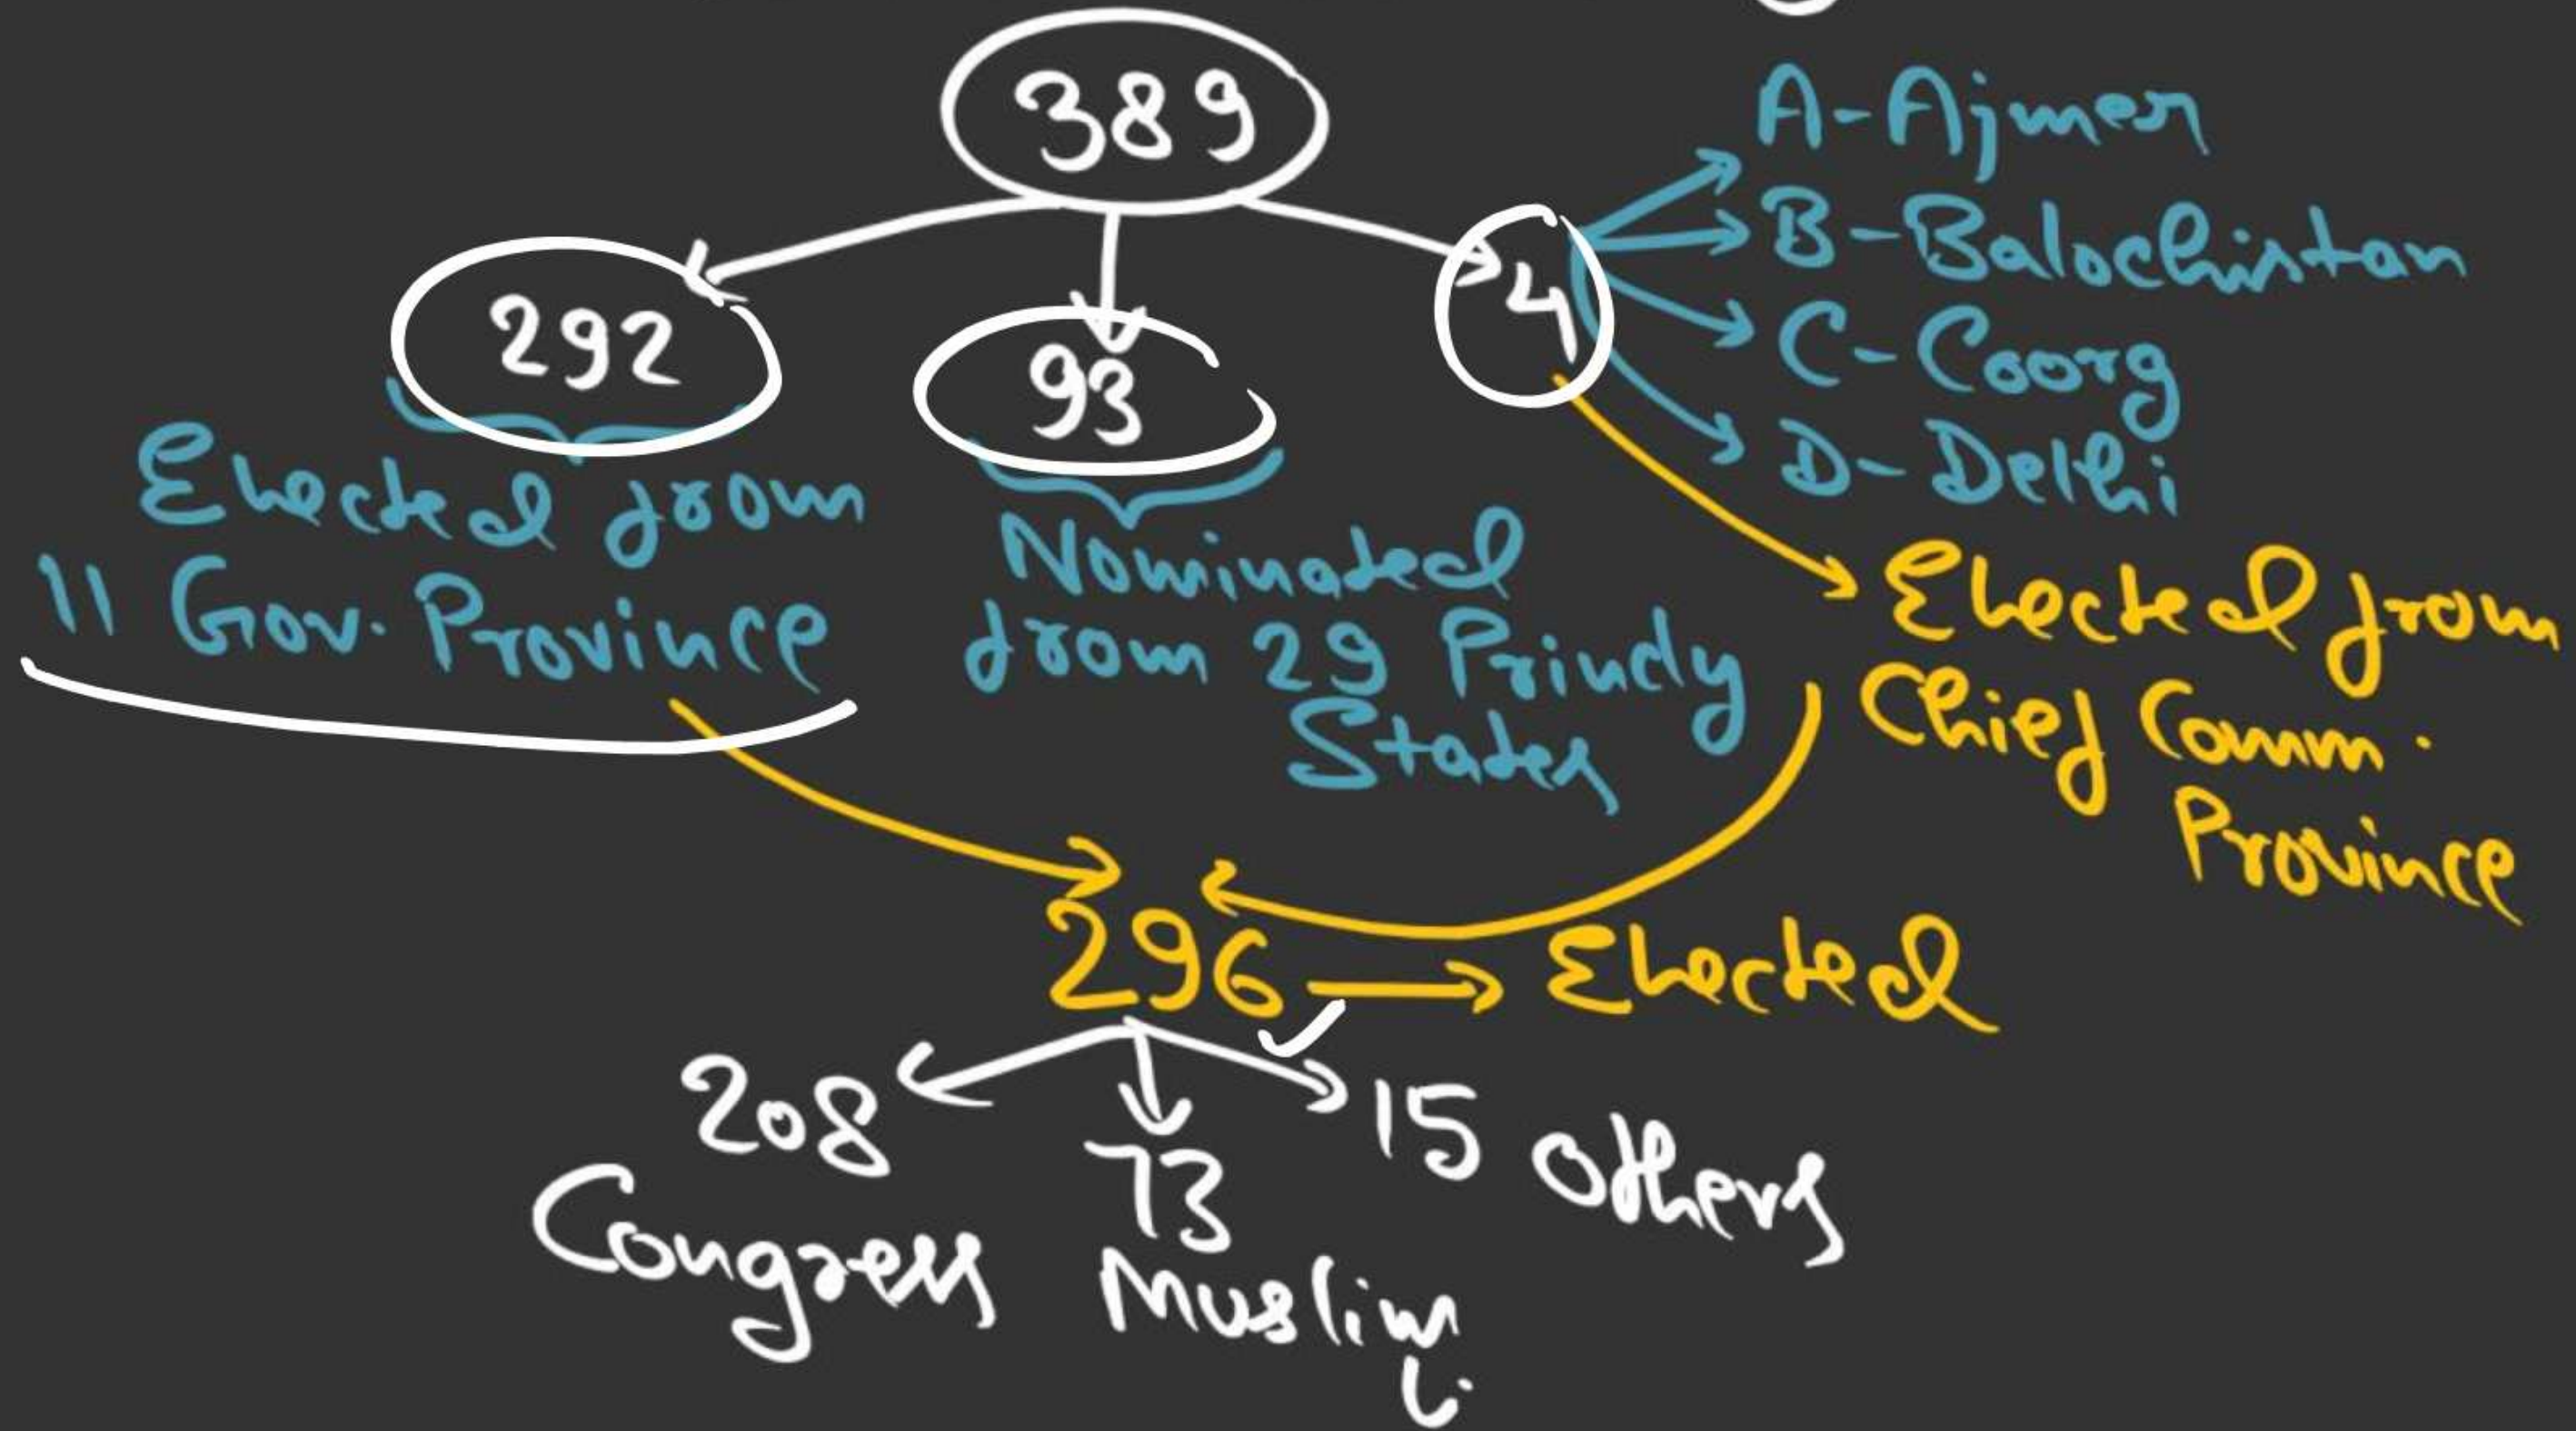 389
292
93
4
A-Ajmer
B-Balochistan
C-Coorg
D-Delhi
Elected from
11 Gov. Province
Nominated
from 29 Princly
States
Elected from
Chief Comm.
Province
296 → Elected
208
Congress
73
Muslim
L.
15 others